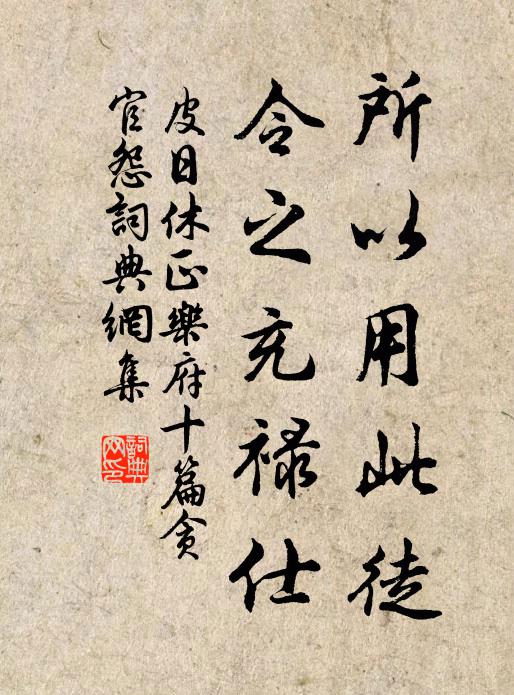 所以用此徒
令之充禄仕
皮日休正樂府十篇貪
官怨詞典網集
詞典
网印